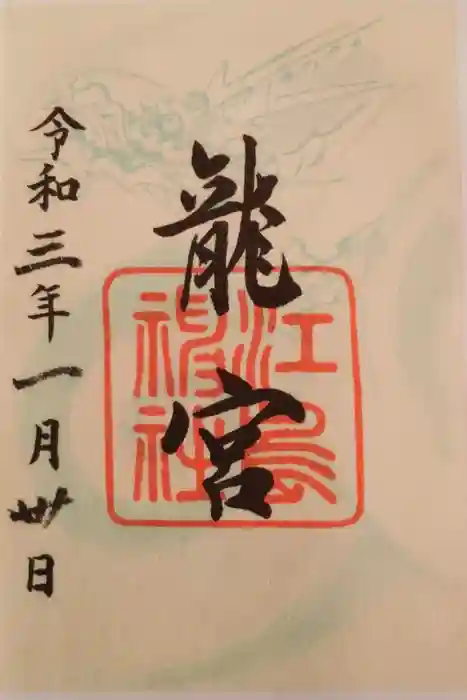 龍宮
江島
神社
令和三年一月卅日